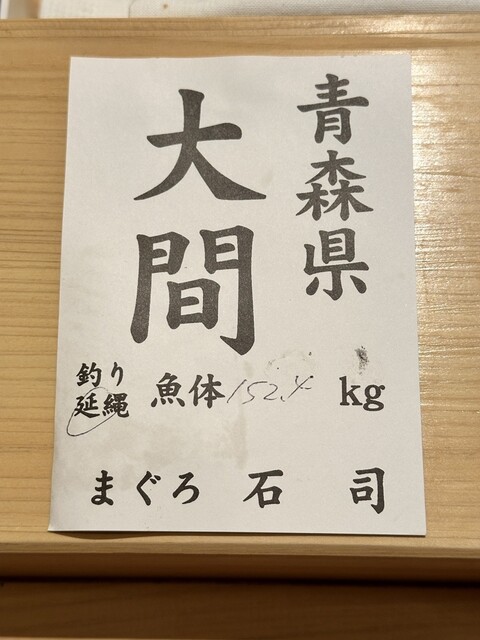 青森県
大間
釣り
延縄
魚体152.4 kg
まぐろ 石司